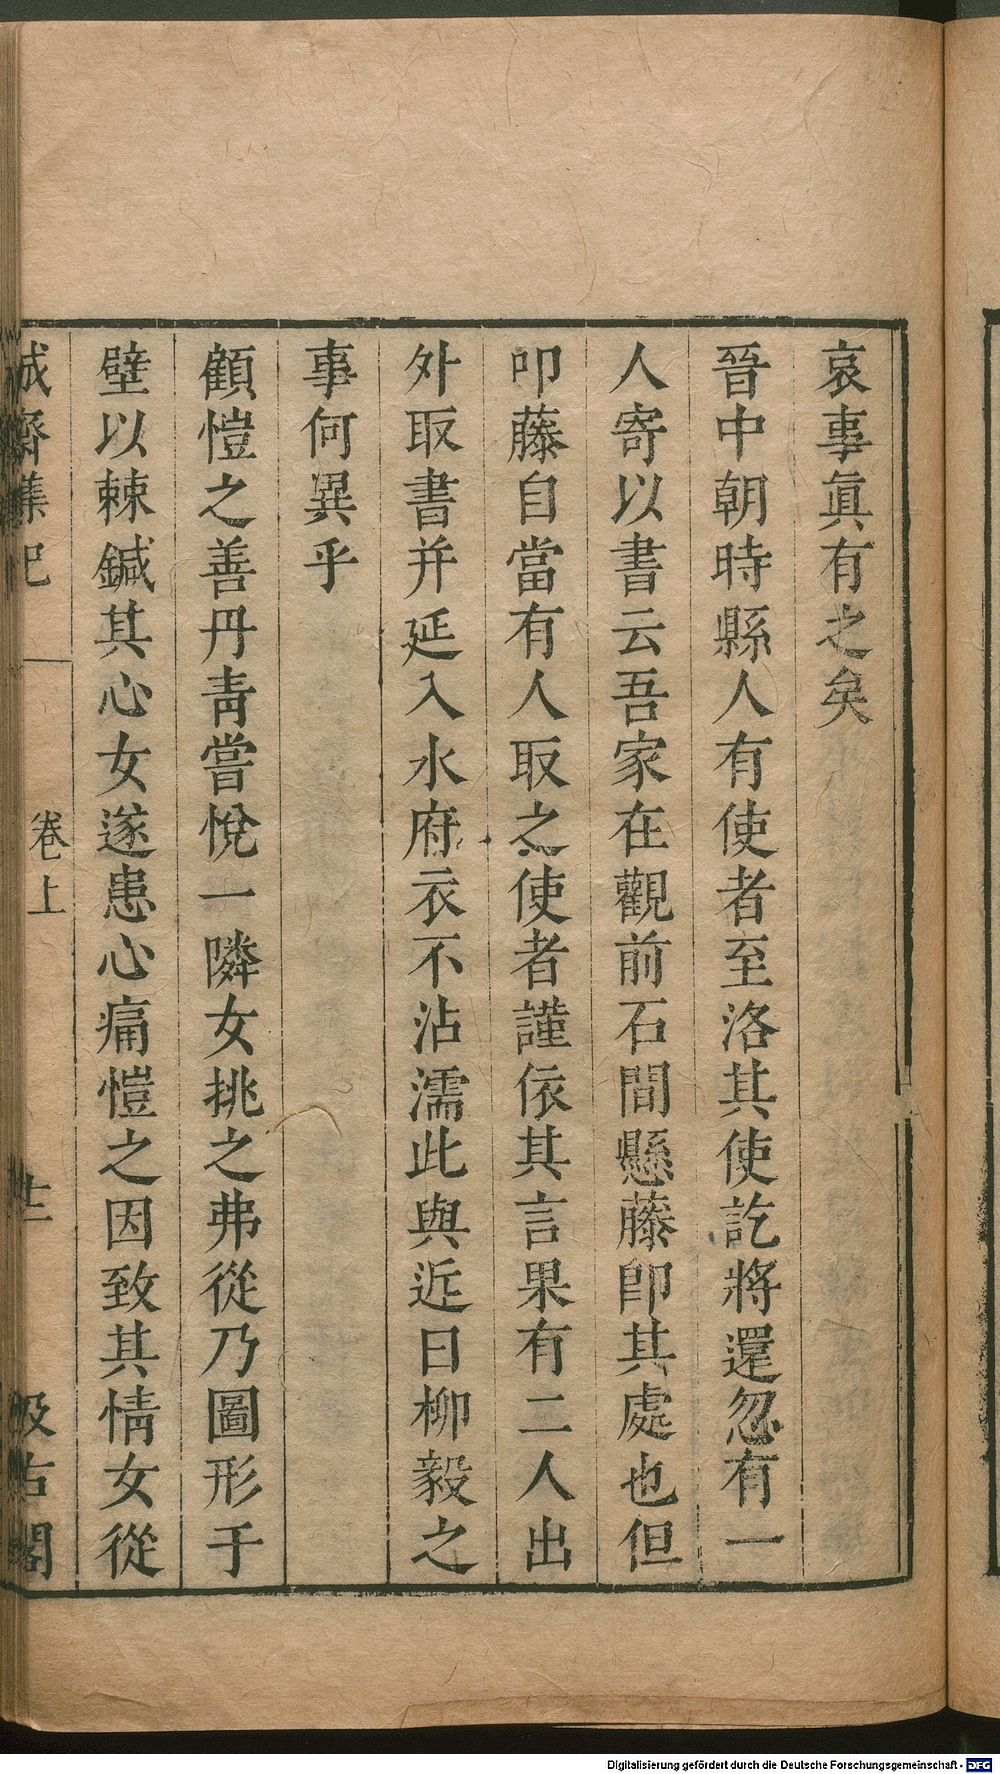 哀事眞有之矣
晉中朝時縣人有使者至洛其使訖將還忽有一
人寄以書云吾家在觀前石間懸藤卽其處也但
叩藤自當有人取之使者謹依其言果有二人出
外取書并延入水府衣不沾濡此與近日柳毅之
事何異乎
顧愷之善丹靑嘗悅一隣女挑之弗從乃圖形于
壁以棘鍼其心女遂患心痛愷之因致其情女從
誠齋襍記 卷上 十二 汲古閣
Digitalisierung gefördert durch die Deutsche Forschungsgemeinschaft - DFG